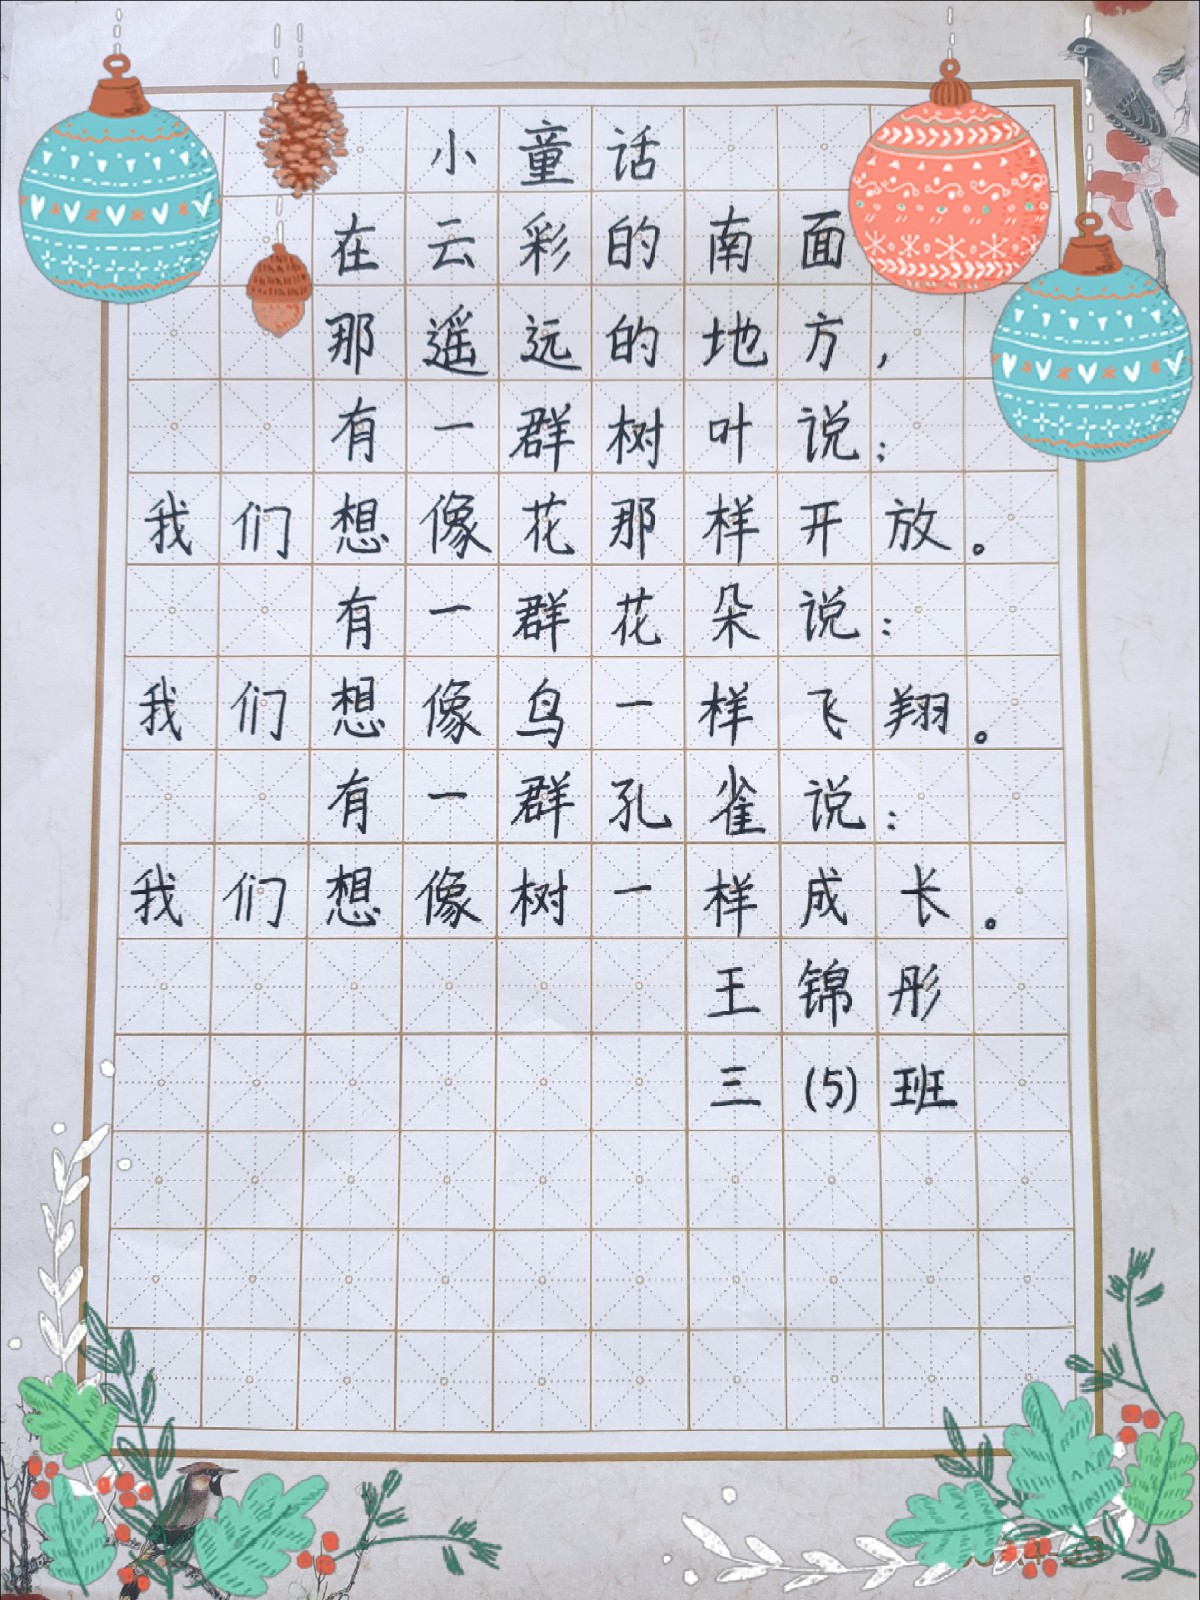 小童话
在云彩的南面
那遥远的地方,
有一群树叶说:
我们想像花那样开放。
有一群花朵说:
我们想像鸟一样飞翔。
有一群孔雀说:
我们想像树一样成长。
王锦彤
三(5)班